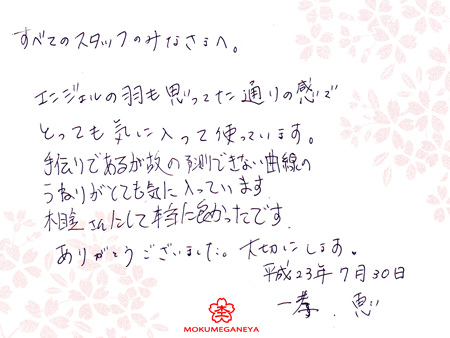 すべてのスタッフのみなさまへ。
エンジェルの羽も思ってた通りの感じで
とっても気に入って使っています。
手作りであるが故の予測できない曲線の
うねりがとても気に入っています
木目屋さんにして本当に良かったです.
ありがとうございました。大切にします。
平成23年7月30日
一孝. 恵
MOKUMEGANEYA